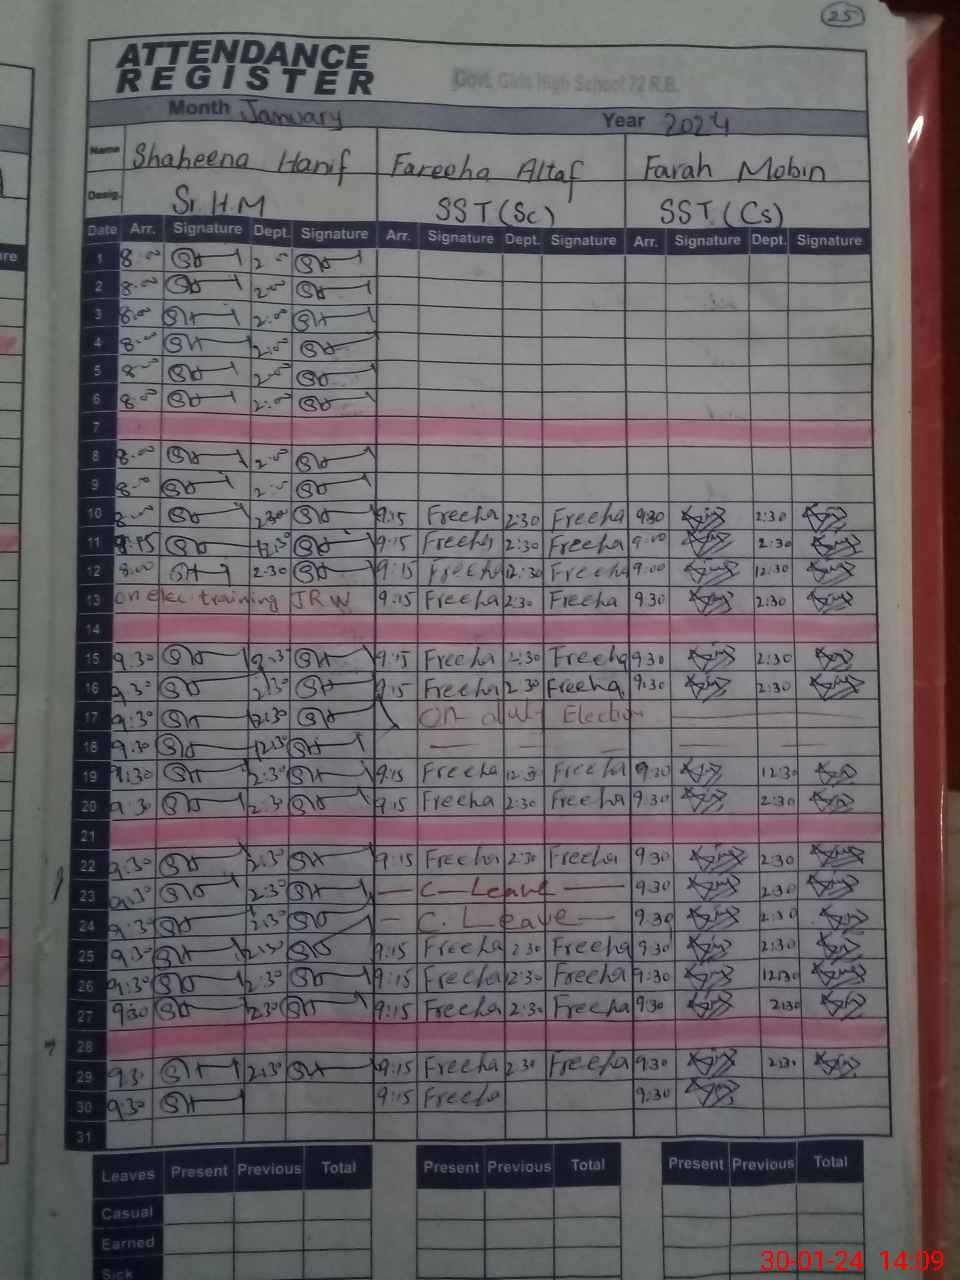 25
ATTENDANCE
REGISTER
Govt. Girls High School 72 R.B.
Month January Year 2024
Name Shaheena Hanif Fareeha Altaf Farah Mobin
Desig. Sr. H.M SST (Sc) SST (Cs)
Date Arr. Signature Dept. Signature Arr. Signature Dept. Signature Arr. Signature Dept. Signature
1 8:00 2:00
2 8:00 2:00
3 8:00 2:00
4 8:00 2:00
5 8:00 2:00
6 8:00 2:00
7
8 8:00 2:00
9 8:00 2:00
10 8:00 2:30 9:15 Freeha 2:30 Freeha 9:30 2:30
11 12:30 9:15 Freeha 2:30 Freeha 9:00 2:30
12 8:00 2:30 9:15 Freeha 12:30 Freeha 9:00 12:30
13 on elec. training JRW 9:15 Freeha 2:30 Freeha 9:30 2:30
14
15 9:30 2:30 9:15 Freeha 2:30 Freeha 9:30 2:30
16 9:30 2:30 9:15 Freeha 2:30 Freeha 9:30 2:30
17 9:30 12:30 On duty Election
18 9:30 12:30
19 9:30 2:30 9:15 Freeha 12:30 Freeha 9:30 12:30
20 9:30 2:30 9:15 Freeha 2:30 Freeha 9:30 2:30
21
22 9:30 2:30 9:15 Freeha 2:30 Freeha 9:30 2:30
23 9:30 2:30 — C-Leave — 9:30 2:30
24 9:30 2:30 — C. Leave — 9:30 2:30
25 9:30 2:30 9:15 Freeha 2:30 Freeha 9:30 2:30
26 9:30 2:30 9:15 Freeha 2:30 Freeha 9:30 12:30
27 9:30 2:30 9:15 Freeha 2:30 Freeha 9:30 2:30
28
29 9:30 2:30 9:15 Freeha 2:30 Freeha 9:30 2:30
30 9:30 9:15 Freeha 9:30
31
Leaves Present Previous Total Present Previous Total Present Previous Total
Casual
Earned
Sick
30-01-24 14:09